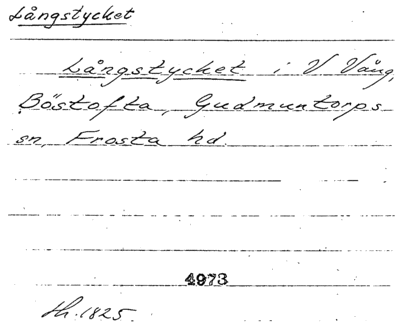 Långstycket
Långstycket i V Vång,
Böstofta, Gudmuntorps
sn, Frosta hd.
4973
th. 1825.